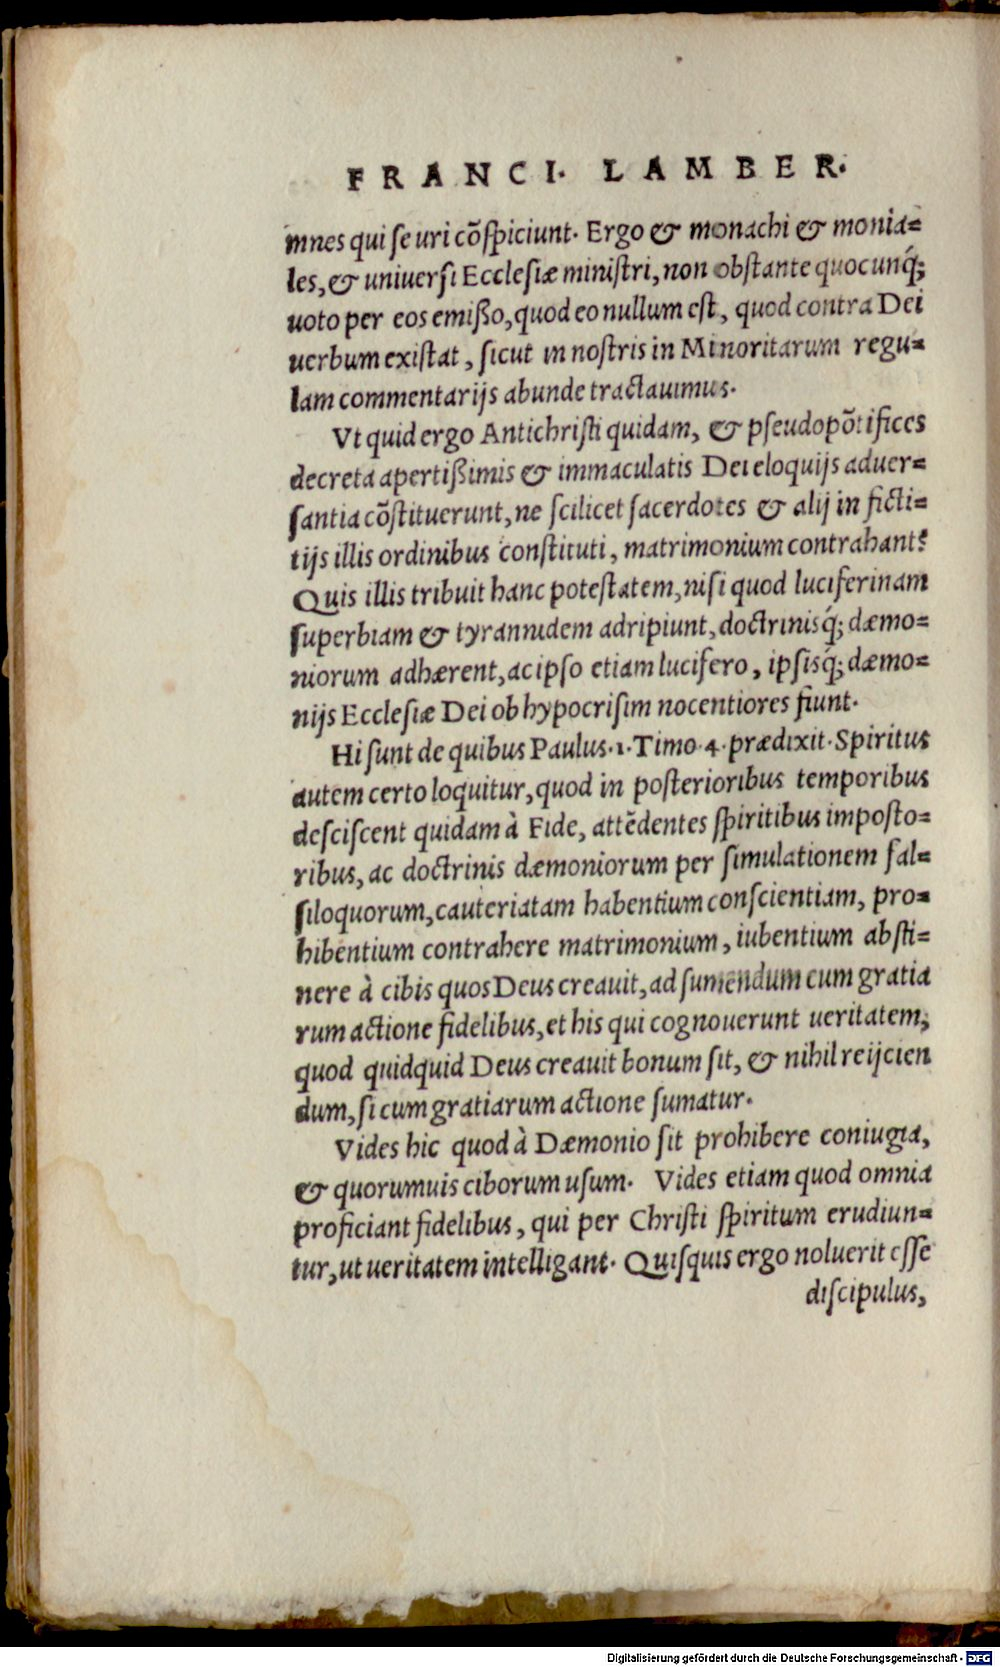 FRANCI. LAMBER.
mnes qui se uri cõspiciunt. Ergo & monachi & monia=
les, & uniuersi Ecclesiæ ministri, non obstante quocunq́;
uoto per eos emißo, quod eo nullum est, quod contra Dei
uerbum existat, sicut in nostris in Minoritarum regu=
lam commentarijs abunde tractauimus.
Vt quid ergo Antichristi quidam, & pseudopõtifices
decreta apertißimis & immaculatis Dei eloquijs aduer=
santia cõstituerunt, ne scilicet sacerdotes & alij in ficti=
tijs illis ordinibus constituti, matrimonium contrahant?
Quis illis tribuit hanc potestatem, nisi quod luciferinam
superbiam & tyrannidem adripiunt, doctrinisq́; dæmo=
niorum adhærent, ac ipso etiam lucifero, ipsisq́; dæmo=
nijs Ecclesiæ Dei ob hypocrisim nocentiores fiunt.
Hi sunt de quibus Paulus .1. Timo. 4. prædixit. Spiritus
autem certo loquitur, quod in posterioribus temporibus
desciscent quidam à Fide, attēdentes spiritibus imposto=
ribus, ac doctrinis dæmoniorum per simulationem fal=
siloquorum, cauteriatam habentium conscientiam, pro=
hibentium contrahere matrimonium, iubentium absti=
nere à cibis quos Deus creauit, ad sumendum cum gratia
rum actione fidelibus, et his qui cognouerunt ueritatem,
quod quidquid Deus creauit bonum sit, & nihil reijcien
dum, si cum gratiarum actione sumatur.
Vides hic quod à Dæmonio sit prohibere coniugia,
& quorumuis ciborum usum. Vides etiam quod omnia
proficiant fidelibus, qui per Christi spiritum erudiun=
tur, ut ueritatem intelligant. Quisquis ergo noluerit esse
discipulus,
Digitalisierung gefördert durch die Deutsche Forschungsgemeinschaft - DFG